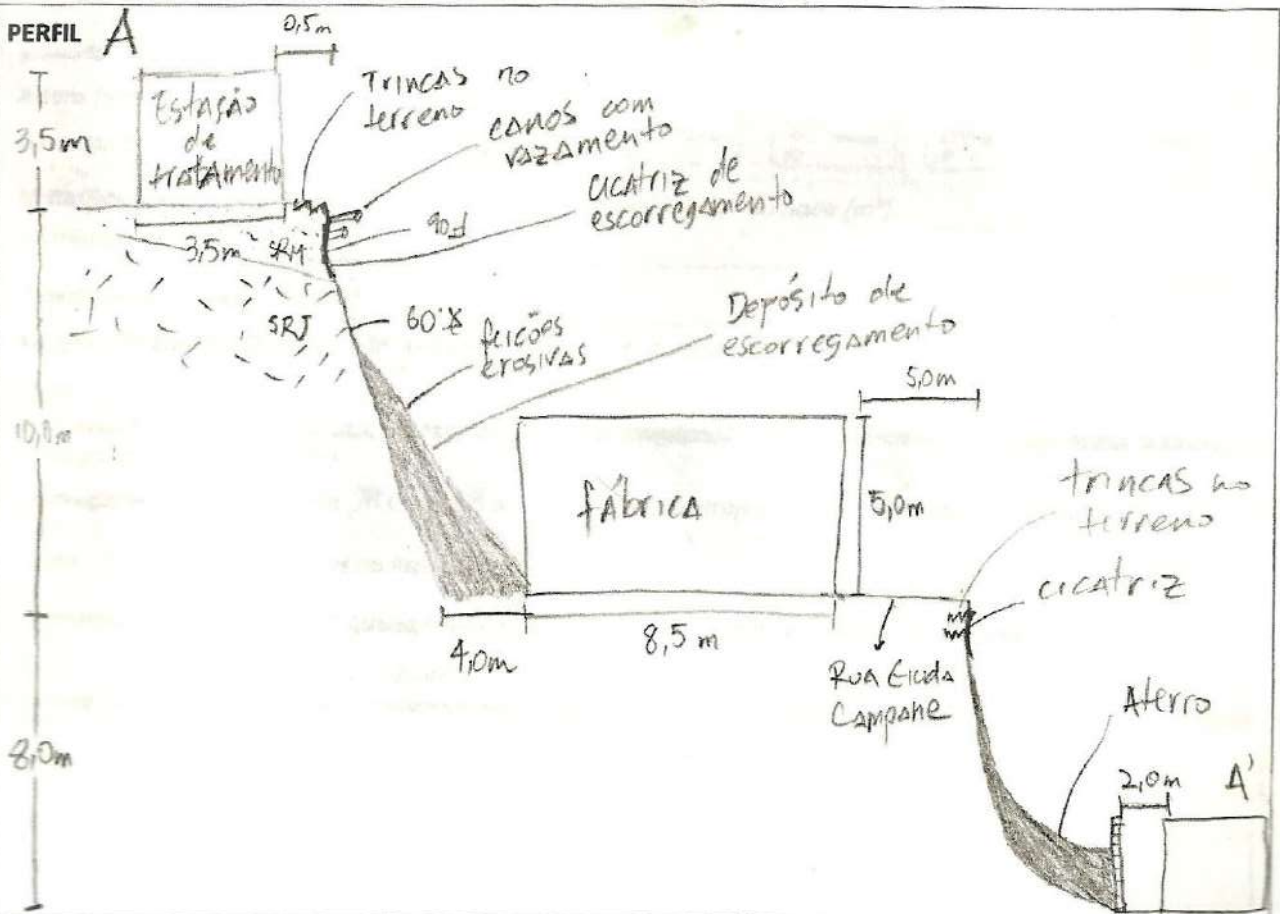 PERFIL A
0,5m
3,5m
Estação
de
tratamento
Trincas no
terreno
canos com
vazamento
cicatriz de
escorregamento
3,5m
SRM
90°
SRJ
60°
feicões
erosivas
Depósito de
escorregamento
10,0m
5,0m
fábrica
5,0m
trincas no
terreno
cicatriz
4,0m
8,5m
Rua
Campane
8,0m
Aterro
2,0m
A'